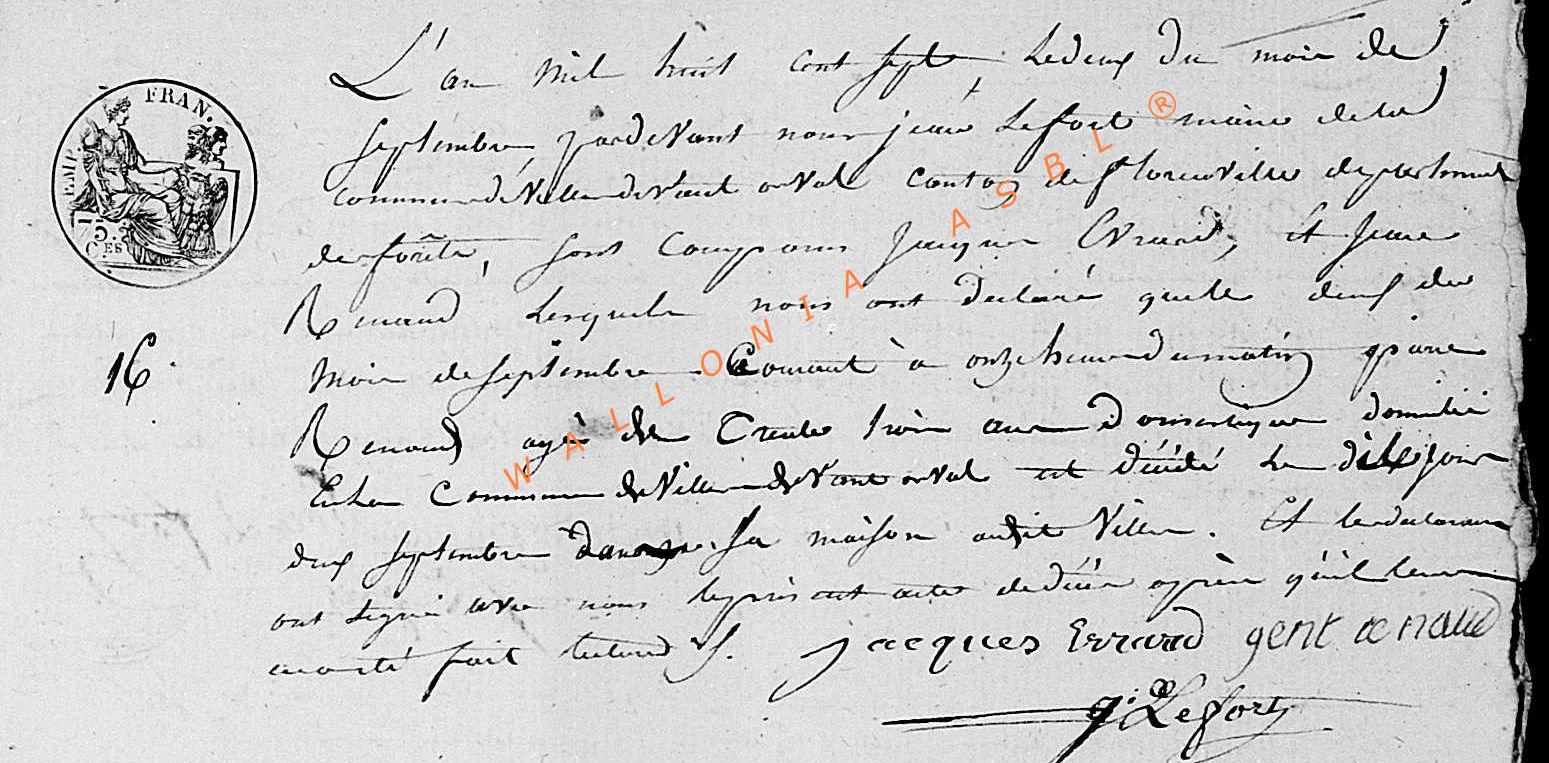 EMP. FRAN.
75.
C.ES
16
L'an mil huit cent sept, le deux du mois de
septembre pardevant nous jean Lefort maire de la
commune de Viller devant orval canton de florenville departement
de forêts, sont comparus jacques Evrard, et jean
Renaud lesquels nous ont declaré que le deux du
mois de septembre courant à onze heures du matin pierre
Renaud agé de trente trois ans domestique domicilié
en la commune de Viller devant orval est décédé le dit jour
deux septembre dans sa maison audit Viller. Et les declarants
ont signé avec nous le present acte de décès après qu'il leur
en a été fait lecture.
jacques Evrard gent renaud
j. Lefort
WALLONIA ASBL ®